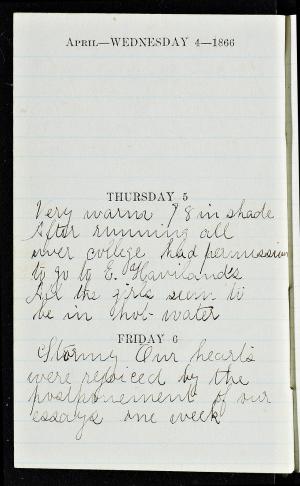 April—WEDNESDAY 4—1866
THURSDAY 5
Very warm 78 in shade
After running all
over college had permission
to go to E. Haviland's
All the girls seem to
be in hot water
FRIDAY 6
Stormy Our hearts
were rejoiced by the
postponement of our
essays one week